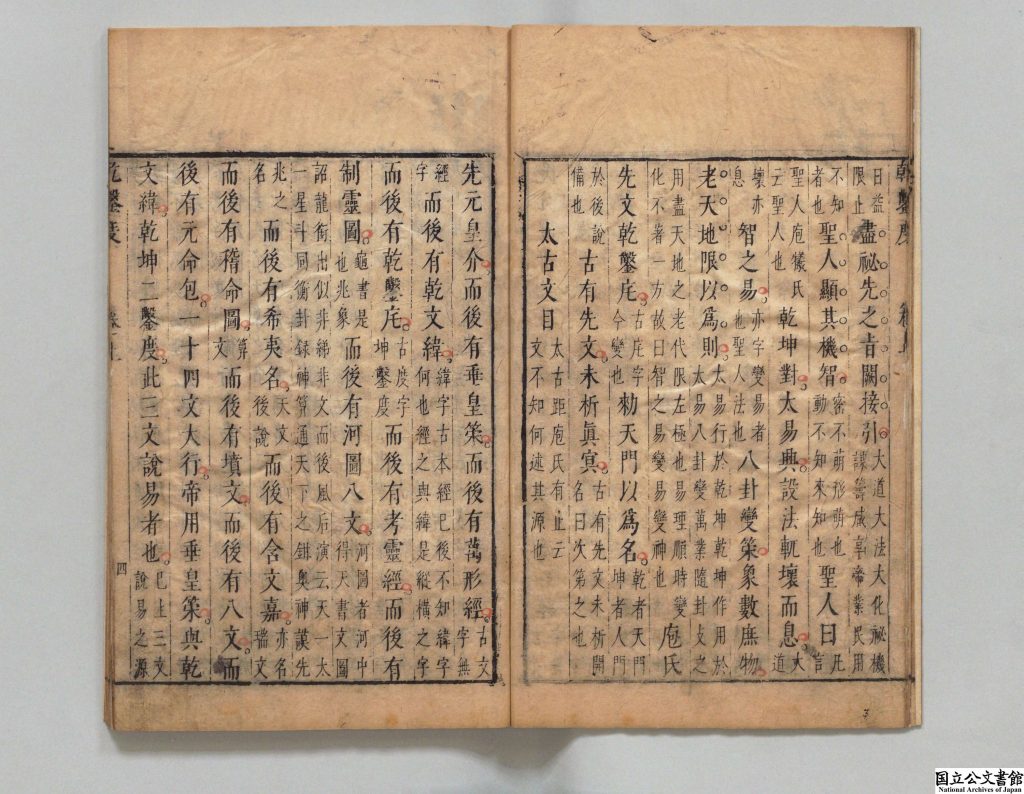 乾鑿度 卷上
日益限止盡祕先之旨闕接引大道大法大化祕機謀籌咸享帝業民用
不知者也聖人顯其機智密不萌形萌也動不知來知也聖人曰凡言
聖人庖犧氏云聖人也乾坤對太易典設法軏壞而息大道
壞亦息智之易亦字變易者也聖人法也八卦變策象數庶物
老天地限以爲則太易行於乾坤乾坤作用於太易八卦變萬業隨卦爻之
用盡天地之老代限左極也易理順時變化不著一方故曰智之易變易變神也庖氏
先文乾鑿庑古庑字今變也勑天門以爲名乾者天門坤者人門
於後說備也古有先文未析眞冥古有先文未析開名曰次第之也
太古文目太古距庖氏有止云文不知何述其源也
先元皇介而後有垂皇策而後有萬形經古文字無
經字而後有乾文緯緯字古本經巳後不知緯字何也經之與緯是縱橫之字
而後有乾鑿庑古度字坤鑿度而後有考靈經而後有
制靈圖龜書是也兆象而後有河圖八文河圖者河中得天書文圖
詔龍銜出似非綈非文而後風后演云天一太一星斗同衡卦録神算通天下之鉗奥神謨先
兆之名而後有希夷名天文後說而後有含文嘉亦名瑞文
而後有稽命圖算文而後有墳文而後有八文而
後有元命包一十四文大行帝用垂皇策與乾
文緯乾坤二鑿度此三文說易者也巳上三文說易之源
乾鑿度 卷上 四
3
国立公文書館
National Archives of Japan